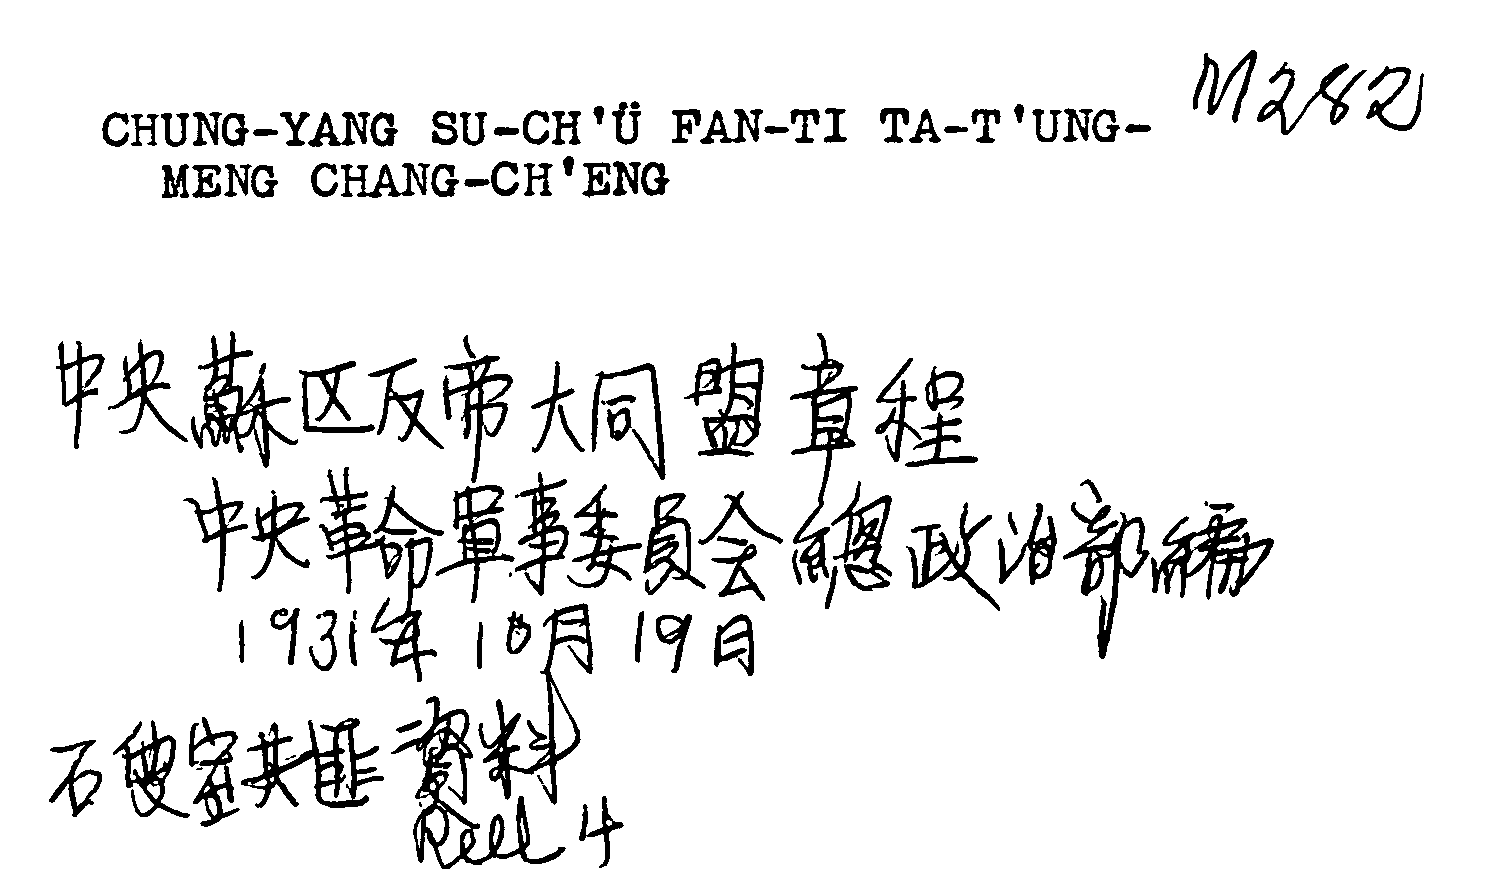 CHUNG-YANG SU-CH'Ü FAN-TI TA-T'UNG-
MENG CHANG-CH'ENG
M282
中央蘇区反帝大同盟章程
中央革命軍事委員会總政治部編
1931年10月19日
石叟室共匪資料
Reel 4